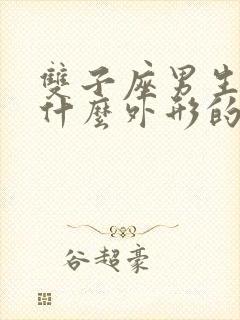 雙子座男生
什麼外形的
谷超豪